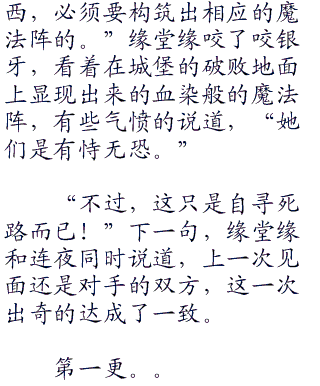 西，必须要构筑出相应的魔
法阵的。”缘堂缘咬了咬银
牙，看着在城堡的破败地面
上显现出来的血染般的魔法
阵，有些气愤的说道，“她
们是有恃无恐。”
“不过，这只是自寻死
路而已！”下一句，缘堂缘
和连夜同时说道，上一次见
面还是对手的双方，这一次
出奇的达成了一致。
第一更。。